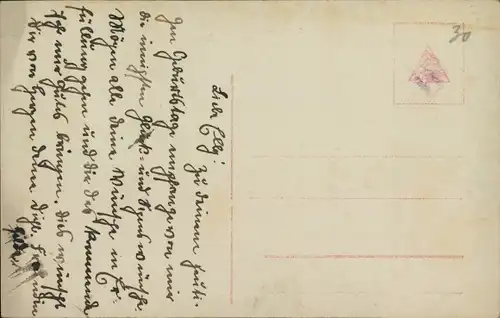 Liebe Elly!
Zu Deinem heuti-
gen Geburtstage empfange von mir
die innigsten Glück- und Segenswünsche.
Mögen alle deine Wünsche in Er-
füllung gehen und dir das kommende
Jahr nur Gutes bringen. Dies wünscht
dir von Herzen deine Freundin
30